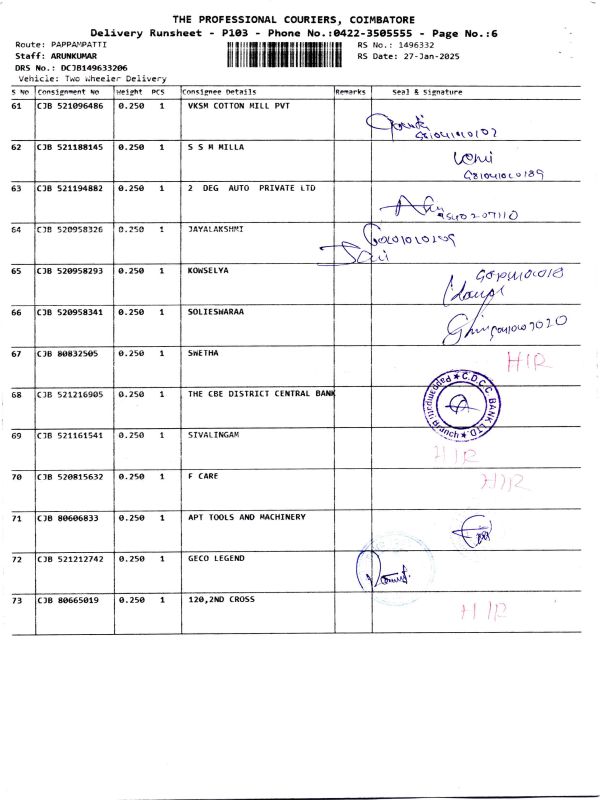 THE PROFESSIONAL COURIERS, COIMBATORE
Delivery Runsheet - P103 - Phone No.:0422-3505555 - Page No.:6
Route: PAPPAMPATTI RS No.: 1496332
Staff: ARUNKUMAR RS Date: 27-Jan-2025
DRS No.: DCJB149633206
Vehicle: Two Wheeler Delivery
S No Consignment No Weight PCS Consignee Details Remarks Seal & Signature
61 CJB 521096486 0.250 1 VKSM COTTON MILL PVT
62 CJB 521188145 0.250 1 S S M MILLA
63 CJB 521194882 0.250 1 2 DEG AUTO PRIVATE LTD
64 CJB 520958326 0.250 1 JAYALAKSHMI
65 CJB 520958293 0.250 1 KOWSELYA
66 CJB 520958341 0.250 1 SOLIESWARAA
67 CJB 80832505 0.250 1 SWETHA HIR
68 CJB 521216905 0.250 1 THE CBE DISTRICT CENTRAL BANK
C.D.C.C. BANK LTD. Pappampatti Branch
69 CJB 521161541 0.250 1 SIVALINGAM HIR
70 CJB 520815632 0.250 1 F CARE HIR
71 CJB 80606833 0.250 1 APT TOOLS AND MACHINERY
72 CJB 521212742 0.250 1 GECO LEGEND
73 CJB 80665019 0.250 1 120,2ND CROSS HIR